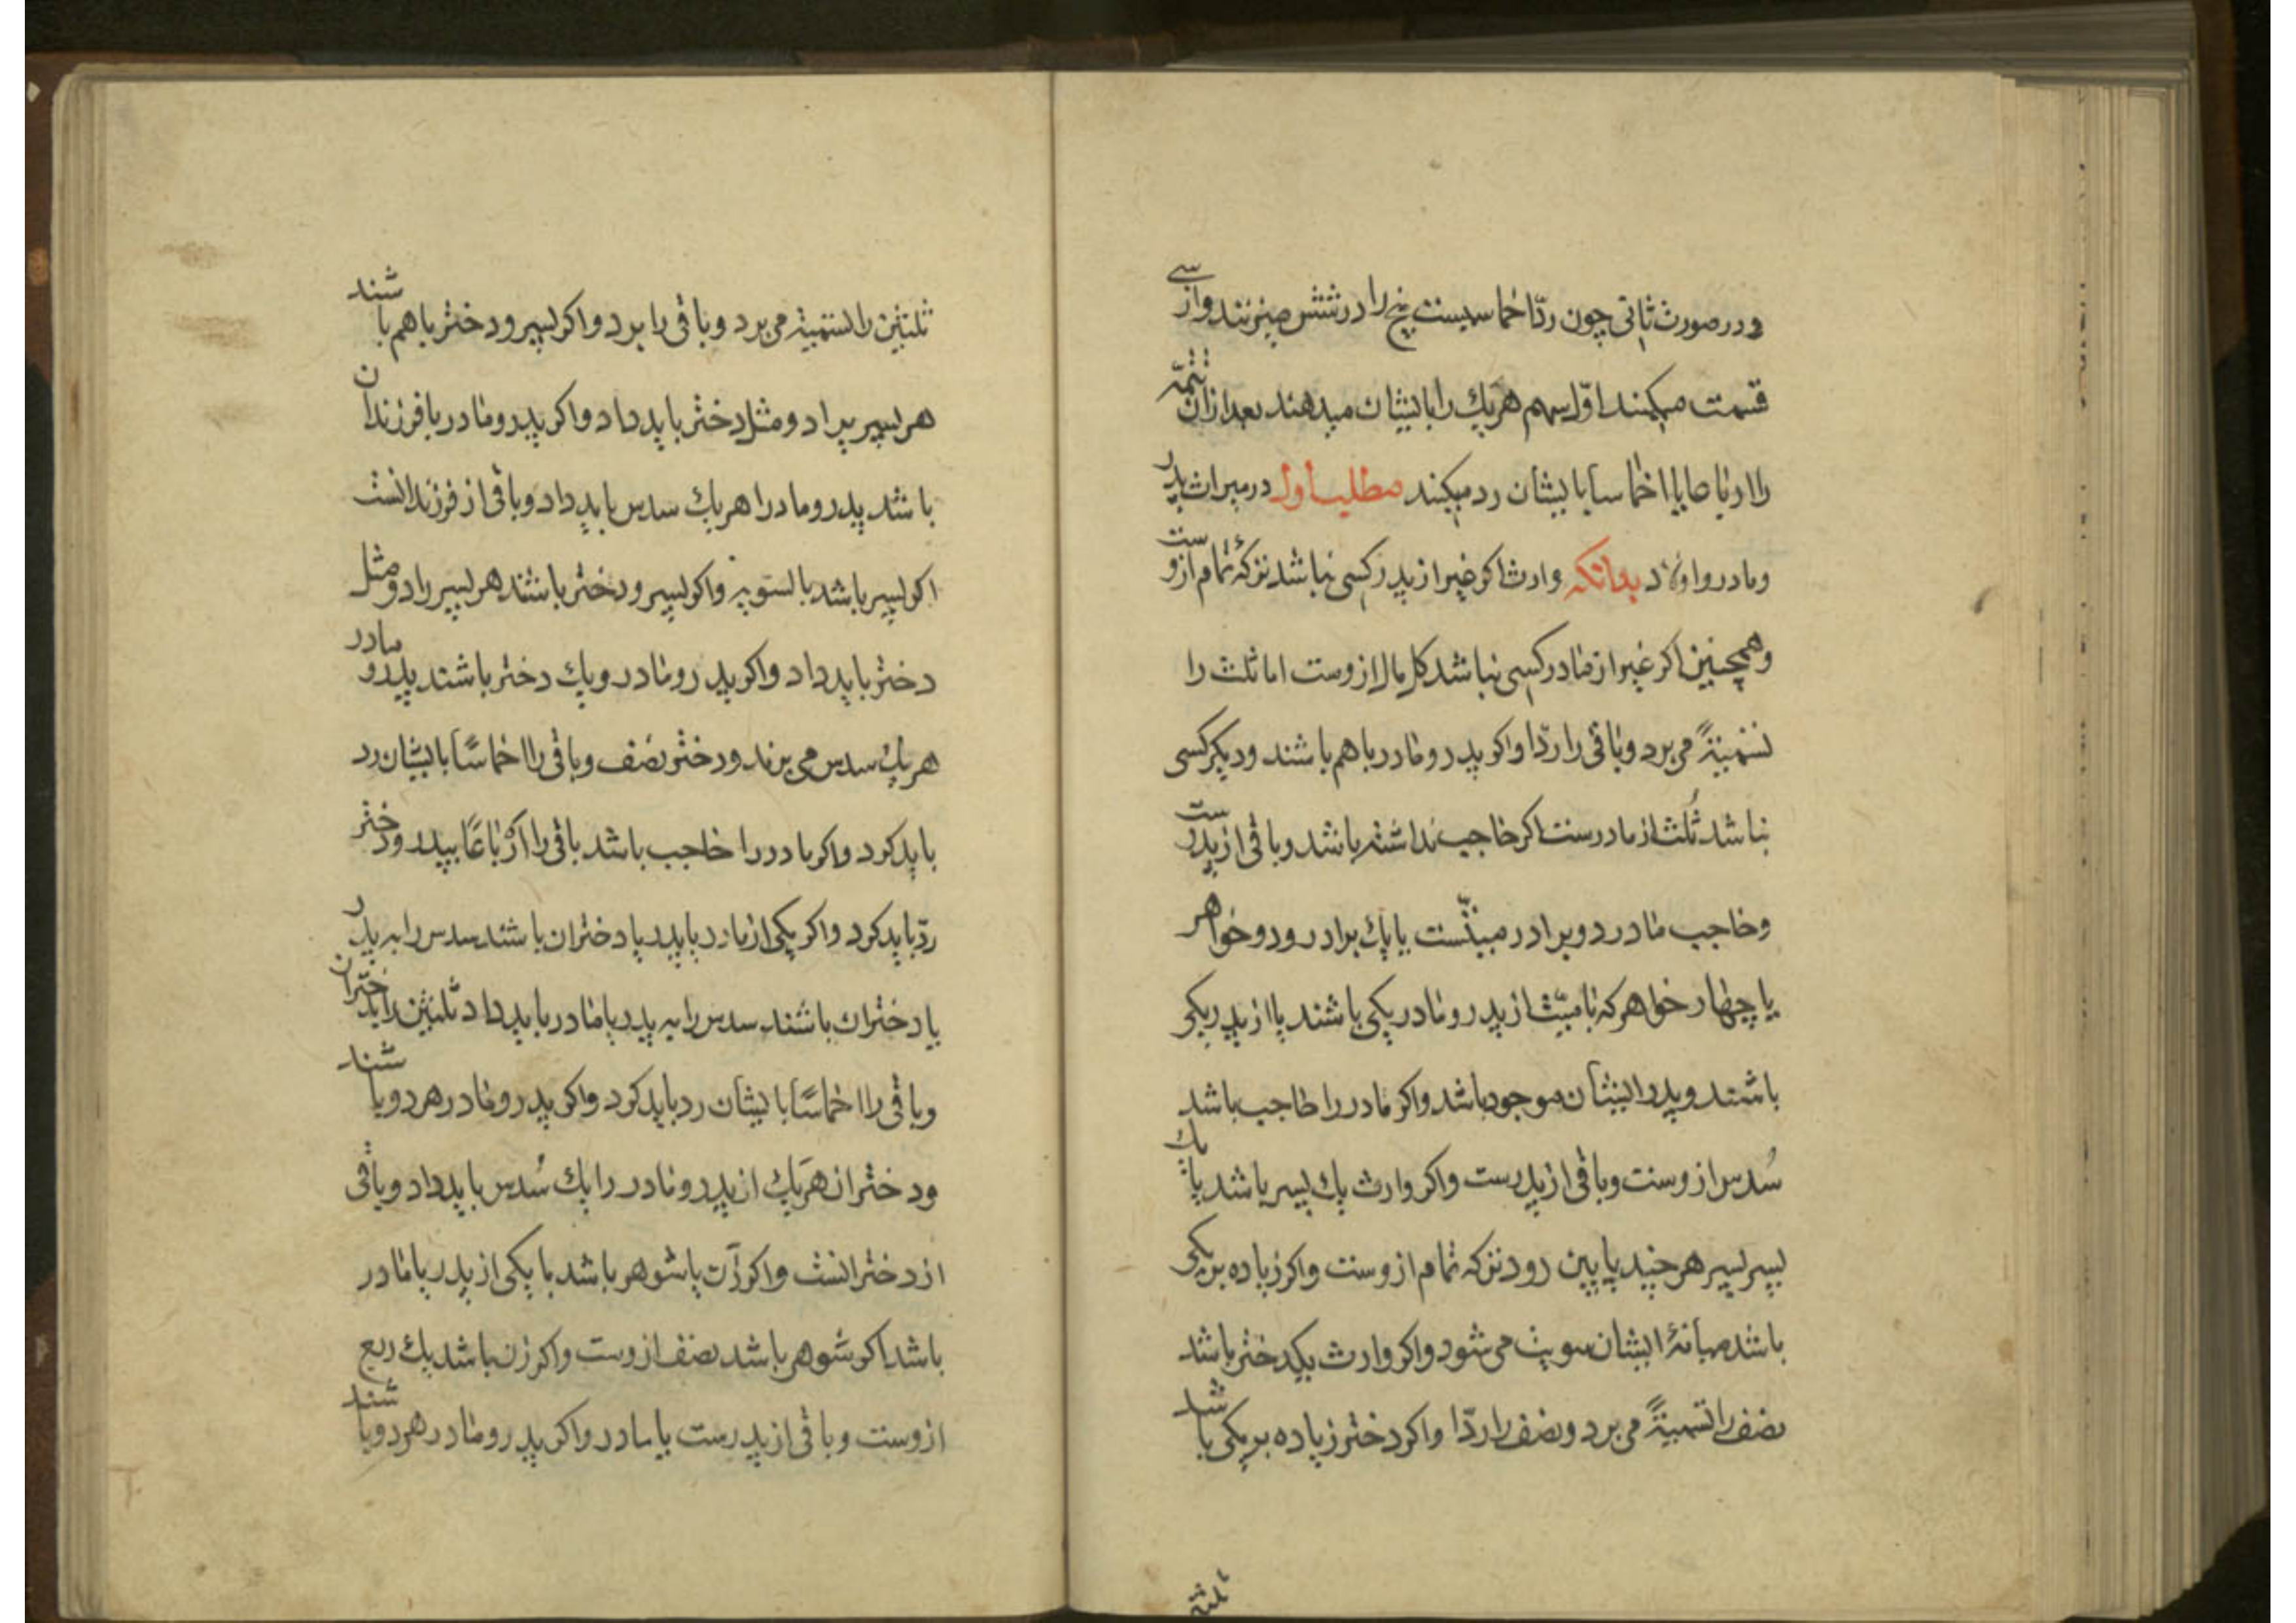 و در صورت ثانی چون ردّ اخماسیست پنج را در شش میزنند و از سی
قسمت میکنند اوّل سهم هر یك را بایشان میدهند بعد از آن تتمّه
را ارباعا یا اخماسا بایشان رد میکنند مطلب اول در میراث پدر
و مادر و اولاد بدانکه وارث اکر غیر از پدر کسی نباشد ترکهٔ تمام ازوست
و همچنین اکر غیر از مادر کسی نباشد کل مال ازوست اما ثلث را
تسمیةً می برد و باقی را ردّا و اکر پدر و مادر با هم باشند و دیکر کسی
نباشد ثُلث از مادرست اکر حاجب نداشته باشد و باقی از پدرست
و حاجب مادر دو برادر میتّست یا یك برادر و دو خواهر
یا چهار خواهر که با میّت از پدر و مادر یکی باشند یا از پدر یکی
باشند و پدر ایشان موجود باشد و اکر مادر را حاجب باشد
سُدس ازوست و باقی از پدرست و اکر وارث یك پسر باشد یا یك
پسر پسر هر چند پایین رود ترکه تمام ازوست و اکر زیاده بر یکی
باشد میانهٔ ایشان سویت می شود و اکر وارث یکدختر باشد
نصف را تسمیةً می برد و نصف را ردّا و اکر دختر زیاده بر یکی باشد
ثلثین
ثلثین را تسمیة می برد و باقی را برد و اکر پسر و دختر با هم باشند
هر پسر برا دو مثل دختر باید داد و اکر پدر و مادر با فرزندان
باشد پدر و مادر را هر یك سدس باید داد و باقی از فرزندانست
اکر پسر باشد بالسویه و اکر پسر و دختر باشند هر پسر را دو مثل
دختر باید داد و اکر پدر و مادر و یك دختر باشند پدر و مادر
هر یك سدس می برند و دختر نصف و باقی را اخماسًا بایشان رد
باید کرد و اکر مادر را حاجب باشد باقی را ارْباعًا بپدر و دختر
ردّ باید کرد و اکر یکی از مادر یا پدر با دختران باشند سدس را به پدر
یا دختران باشند سدس را به پدر یا مادر باید داد ثلثین را بدختران
و باقی را اخماسًا بایشان رد باید کرد و اکر پدر و مادر هر دو باشند
و دختران هر یك از پدر و مادر را یك سُدس باید داد و باقی
از دخترانست و اکر زن یا شوهر باشد با یکی از پدر یا مادر
باشد اکر شوهر باشد نصف ازوست و اکر زن باشد یك ربع
ازوست و باقی از پدرست یا مادر و اکر پدر و مادر هر دو باشند